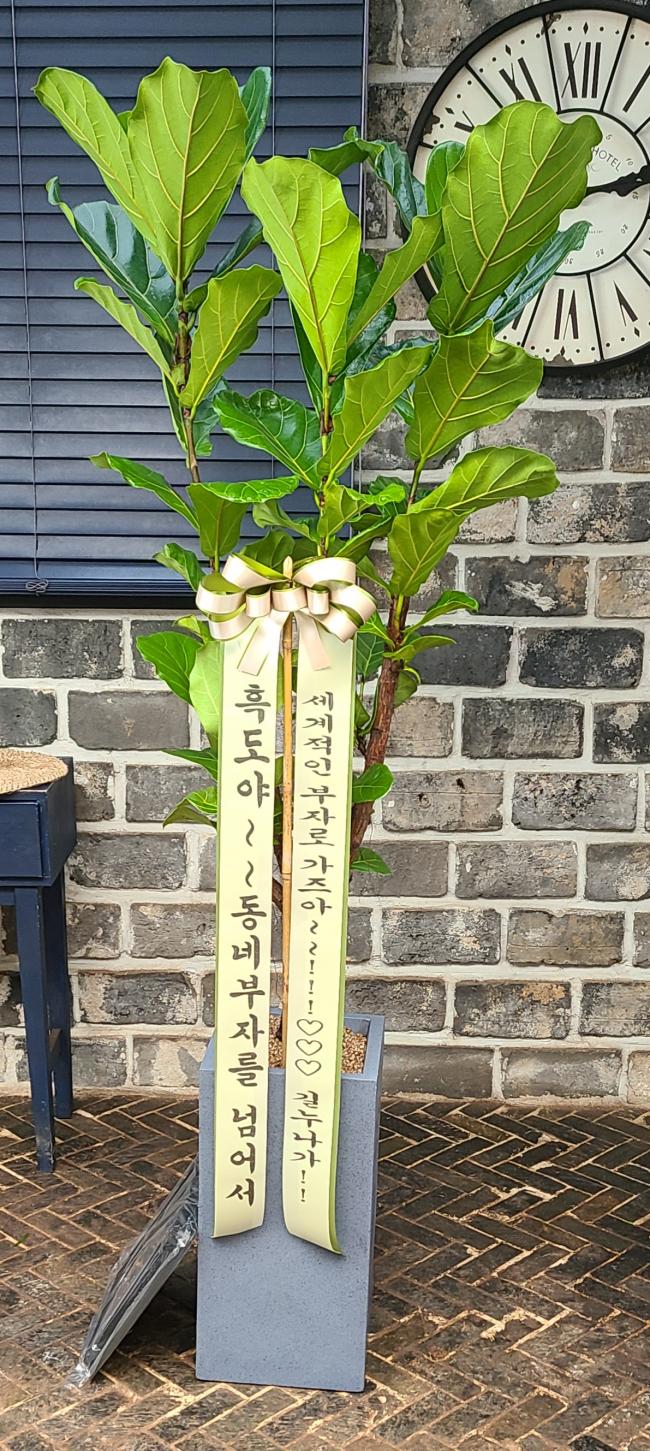 흑도야~~동네부자를 넘어서
세계적인 부자로 가즈아~~!!!♡♡♡ 길누나가!!
HOTEL